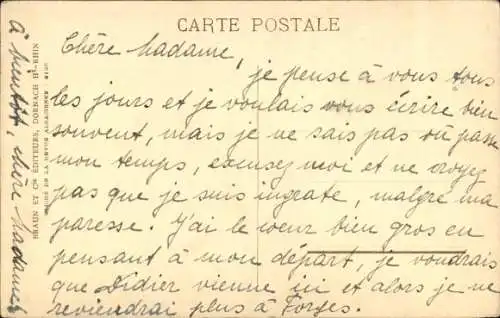 CARTE POSTALE
Chère Madame,
je pense à vous tous
les jours et je voulais vous écrire bien
souvent, mais je ne sais pas où passe
mon temps, excusez moi et ne croyez
pas que je suis ingrate, malgré ma
paresse. J'ai le cœur bien gros en
pensant à mon départ, je voudrais
que Didier vienne ici et alors je ne
reviendrai plus à Forges.
à bientôt, chère Madame
BRAUN ET Cie ÉDITEURS, DORNACH Ht-RHIN
DE LA REVUE ALSACIENNE